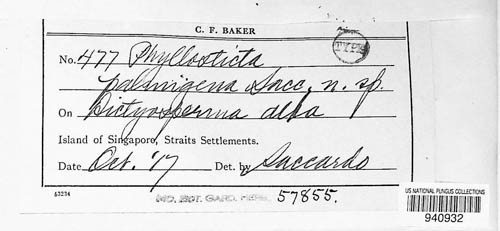 C. F. BAKER
No. 477 Phyllosticta
TYPE
palmigena Sacc. n. sp.
On Dictyosperma alba
Island of Singapore, Straits Settlements.
Date Oct. '17 Det. by Saccardo
53234
MO. BOT. GARD. HERB. 57855.
US NATIONAL FUNGUS COLLECTIONS
940932